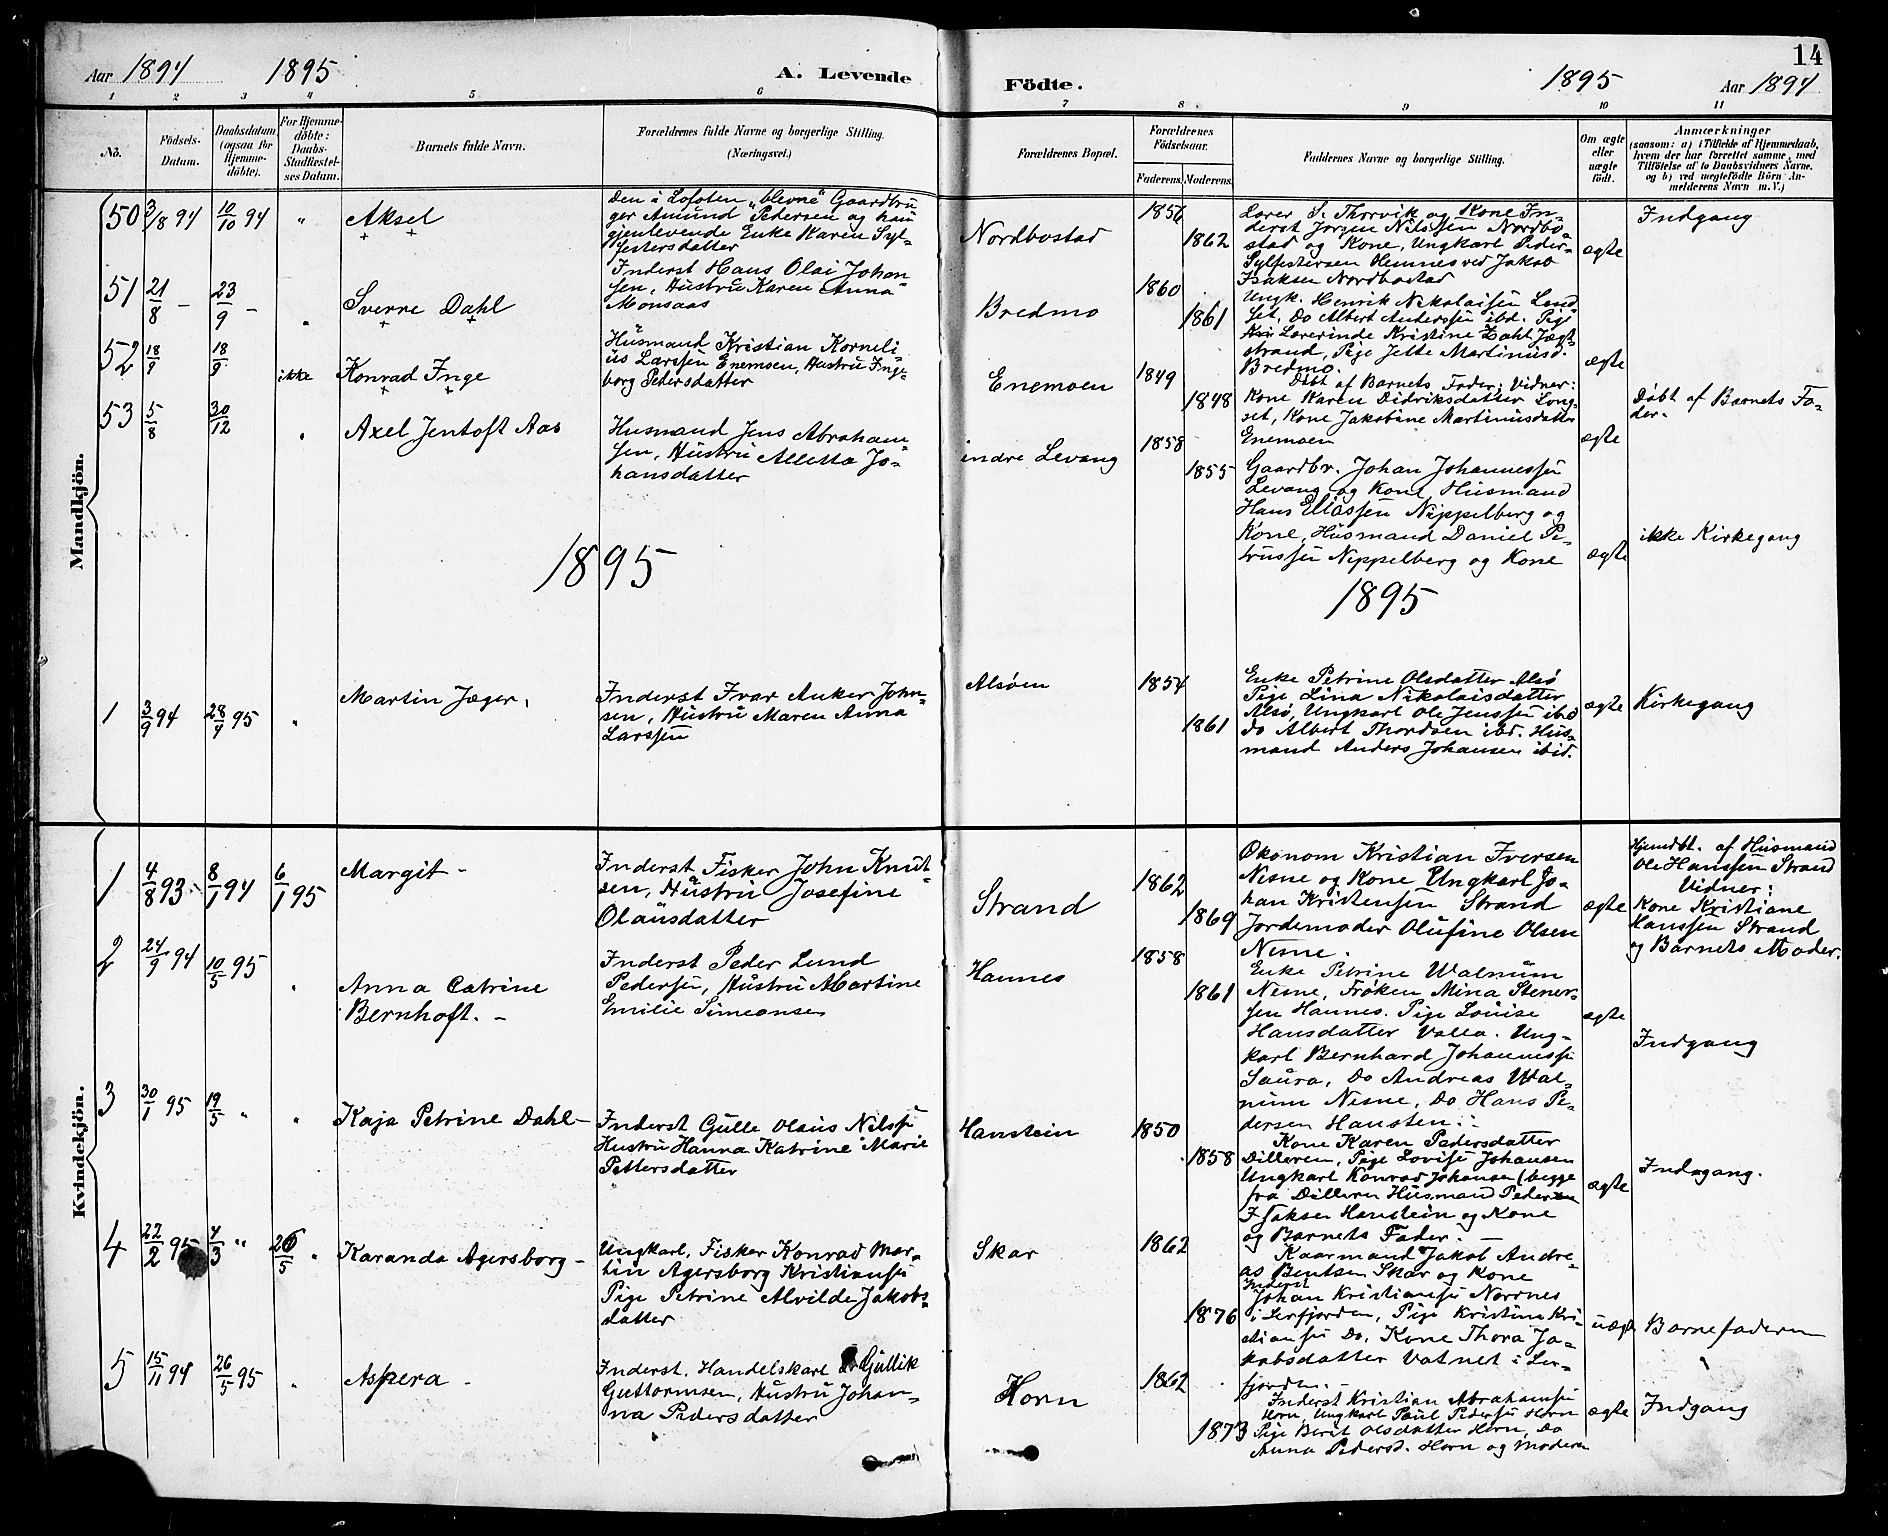 14
Aar 1894 1895 A. Levende Födte. 1895 Aar 1894
1 2 3 4 5 6 7 8 9 10 11
No.
Födsels-
Datum.
Daabsdatum
(ogsaa for
Hjemme-
döbte).
For Hjemme-
döbte:
Daabs-
Stadfæstel-
ses Datum.
Barnets fulde Navn.
Forældrenes fulde Navne og borgerlige Stilling.
(Næringsvei.)
Forældrenes Bopæl.
Forældrenes
Födselsaar.
Faderens. Moderens.
Faddernes Navne og borgerlige Stilling.
Om ægte
eller
uægte
födt.
Anmærkninger
(saasom: a) i Tilfælde af Hjemmedaab,
hvem der har forrettet samme, med
Tilföielse af to Daabsvidners Navne,
og b) ved uægtefödte Börn An-
melderens Navn m. V.)
Mandkjön.
50 3/8 94 10/10 94 "
Aksel
Den i Lofoten "blevne" Gaardbru
ger Amund Pedersen og hans
gjenlevende Enke Karen Syl-
festersdatter
Nordbostad
1856
1862
Lærer S. Thorvik og Kone In-
derst Jørgen Nilssen Nordbo-
stad og Kone, Ungkarl Peder
Sylfestersen Hemnes ved Jakob
Isaksen Nordbostad
ægte
Indgang
51 21/8 - 23/9 - "
Sverre Dahl
Inderst Hans Olai Johan
sen, Hustru Karen Anna
Monsaas
Bredmo
1860
1861
Ungk. Henrik Nikolaisen Lend
set, Do Albert Anderssen ibd. Pige
Lærerinde Kristine Dahl Jægt-
strand, Pige Jette Martinusd.
Bredmo.
ægte
52 18/9 18/9 ikke
Konrad Inge
Husmand Kristian Korneli-
us Larssen Enemoen, Hustru Inge-
borg Pedersdatter
Enemoen
1849
1848
Döbt af Barnets Fader; Vidner:
Kone Karen Didriksdatter Long-
set, Kone Jakobine Martinusdatter
Enemoen
ægte
Döbt af Barnets Fa-
der.
53 5/8 30/12 "
Axel Jentoft Aas
Husmand Jens Abraham
sen, Hustru Alletta Jo-
hansdatter
indre Levang
1858
1855
Gaardbr. Johan Johannessen
Levang og Kone, Husmand
Hans Eliassen Nippelberg og
Kone, Husmand Daniel Pe-
trussen Nippelberg og Kone
ægte
ikke Kirkegang
1895 1895
1 3/9 94 28/4 95 "
Martin Jæger.
Inderst Ivar Anker John-
sen, Hustru Maren Anna
Larssen
Alsøen
1854
1861
Enke Petrine Olsdatter Alsø
Pige Lina Nikolaisdatter
Alsø, Ungkarl Ole Jenssen ibid
do Albert Thordsen ibd. Hus-
mand Anders Johansen ibid.
ægte
Kirkegang
Kvindekjön.
1 4/8 93 - 8/1 94 6/1 95
Margit -
Inderst Fisker John Knut-
sen, Hustru Josefine
Olausdatter
Strand
1862
1869
Økonom Kristian Iversen
Nesne og Kone Ungkarl Jo-
han Kristensen Strand
Jordemoder Olufine Olsen
Nesne.
ægte
Hjemdbt. af Husmand
Ole Hanssen Strand
Vidner:
Kone Kristiane
Hanssen Strand
og Barnets Moder.
2 24/9 94 10/5 95 "
Anna Catrine
Bernhoft. -
Inderst Peder Lund
Pedersen, Hustru Martine
Emilie Simeonsen
Hannes
1858
1861
Enke Petrine Walnum
Nesne, Frøken Mina Stener-
sen Hannes. Pige Louise
Hansdatter Valla. Ung-
karl Bernhard Johannessen
Saura, Do Andreas Wal-
num Nesne, Do Hans Pe-
dersen Hansten.
ægte
Indgang
3 30/1 95 19/5 " "
Kaja Petrine Dahl -
Inderst Gulle Olaus Nilssen
Hustru Hanna Katrine Marie
Pettersdatter
Hanstein
1850
1858
Kone Karen Pedersdatter
Dilleren, Pige Lovise Johansen
Ungkarl Konrad Johansen (begge
fra Dilleren Husmand Peder
Isaksen Hanstein og Kone
og Barnets Fader. -
ægte
Indgang.
4 22/2 95 4/3 " 26/5 "
Karanda Agersborg -
Ungkarl, Fisker Konrad Mar-
tin Agersborg Kristiansen
Pige Petrine Alvilde Jakobs-
datter
Skar
1862
1876
Kaarmand Jakob Andre-
as Bentsen Skar og Kone
Inderst
Johan Kristiansen Nordnes
i Serfjorden, Pige Kristine Kri-
stiansen Do, Kone Thora Ja-
kobsdatter Vatnet i Ser-
fjorden. -
uægte
Barnefaderen
5 15/11 94 26/5 95 "
Aspera -
Inderst, Handelskarl Gullik
Guttormsen, Hustru Johan-
na Pedersdatter
Horn
1862
1873
Inderst Kristian Abrahamsen
Horn, Ungkarl Paul Pedersen Horn
Pige Berit Olsdatter Horn, Do
Anna Pedersd. Horn og Moderen
ægte
Indgang